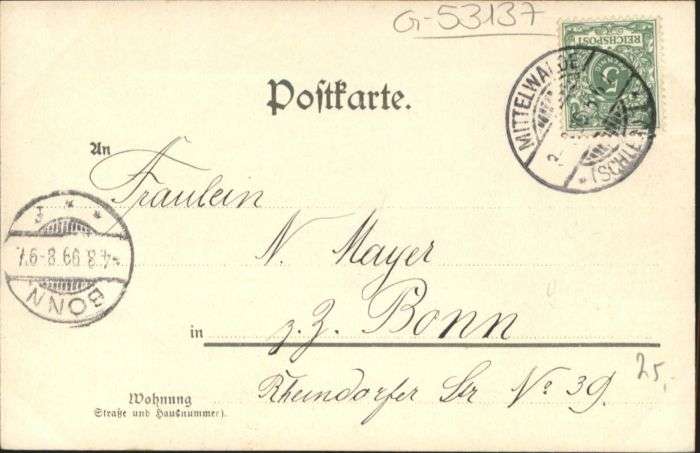 G-53137
REICHSPOST
5
MITTELWALDE
(SCHLES.)
Postkarte.
An
Fräulein
N. Mayer
in z. Z. Bonn
Rheindorfer Str No 39.
BONN
4.8.99 8-9V.
25,-
Wohnung
(Straße und Hausnummer).